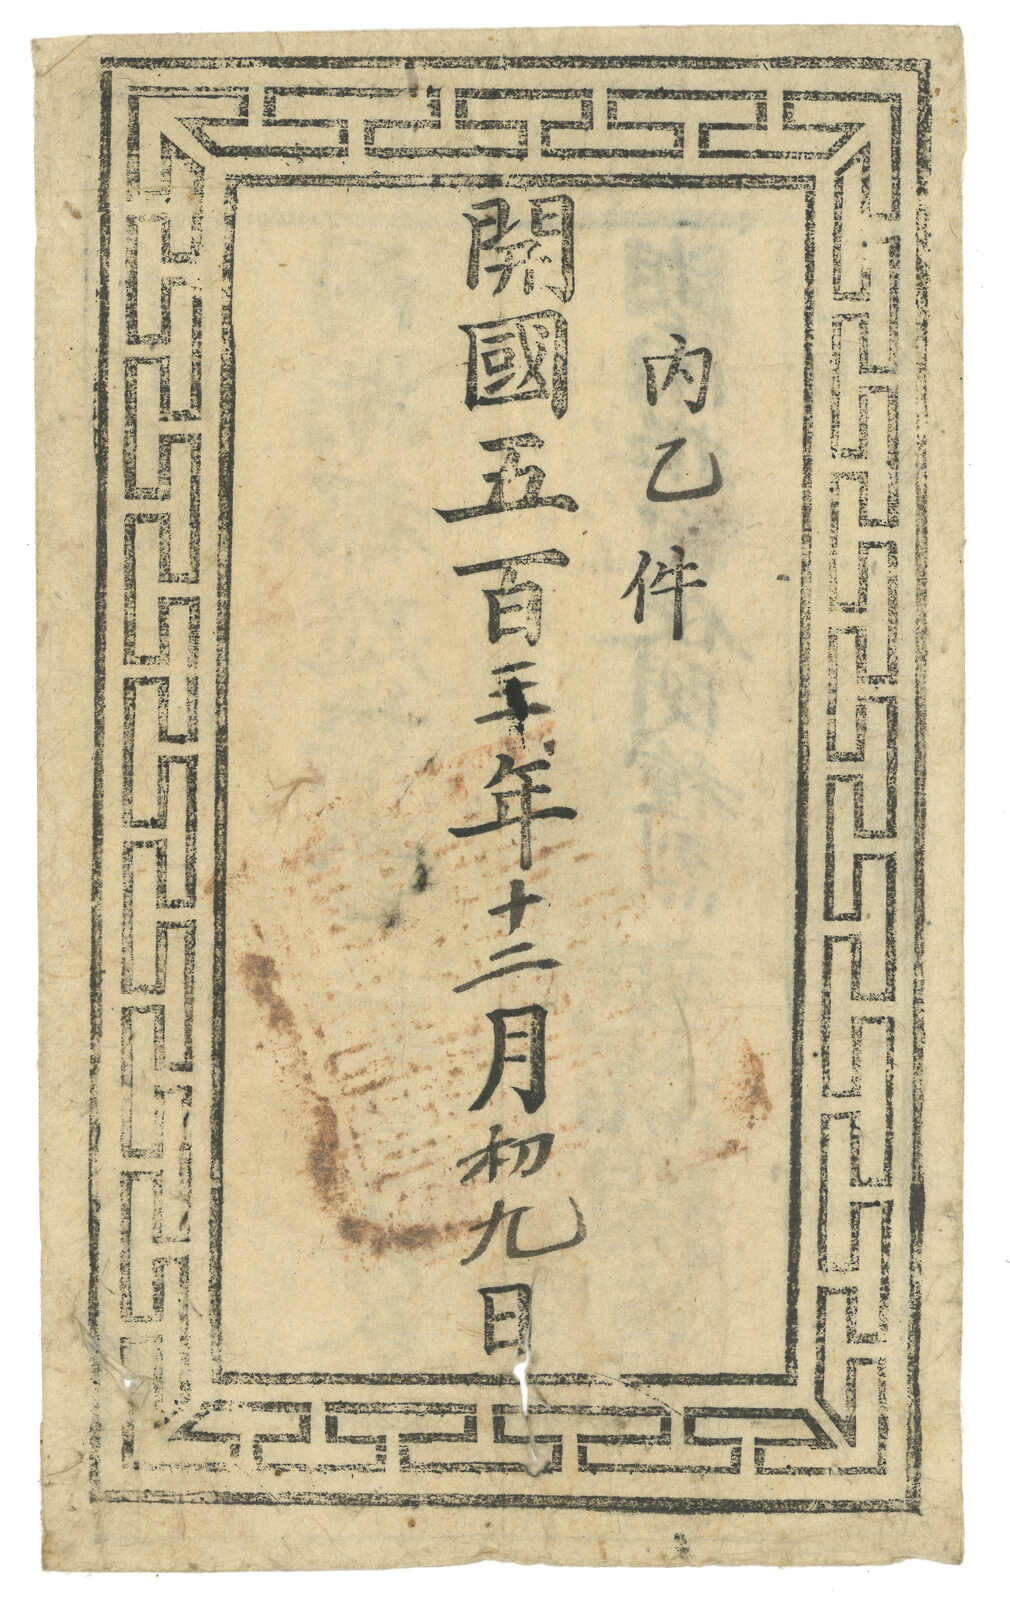 內乙件
開國五百三年十二月初九日